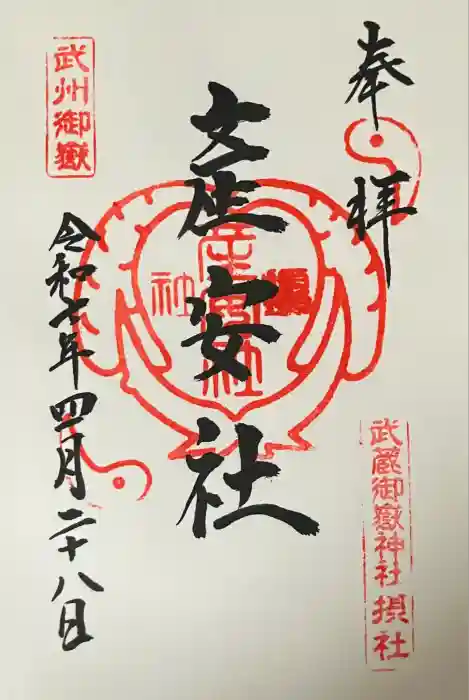 奉拝
武蔵御嶽神社摂社
産安社
武州御嶽
令和七年四月二十八日